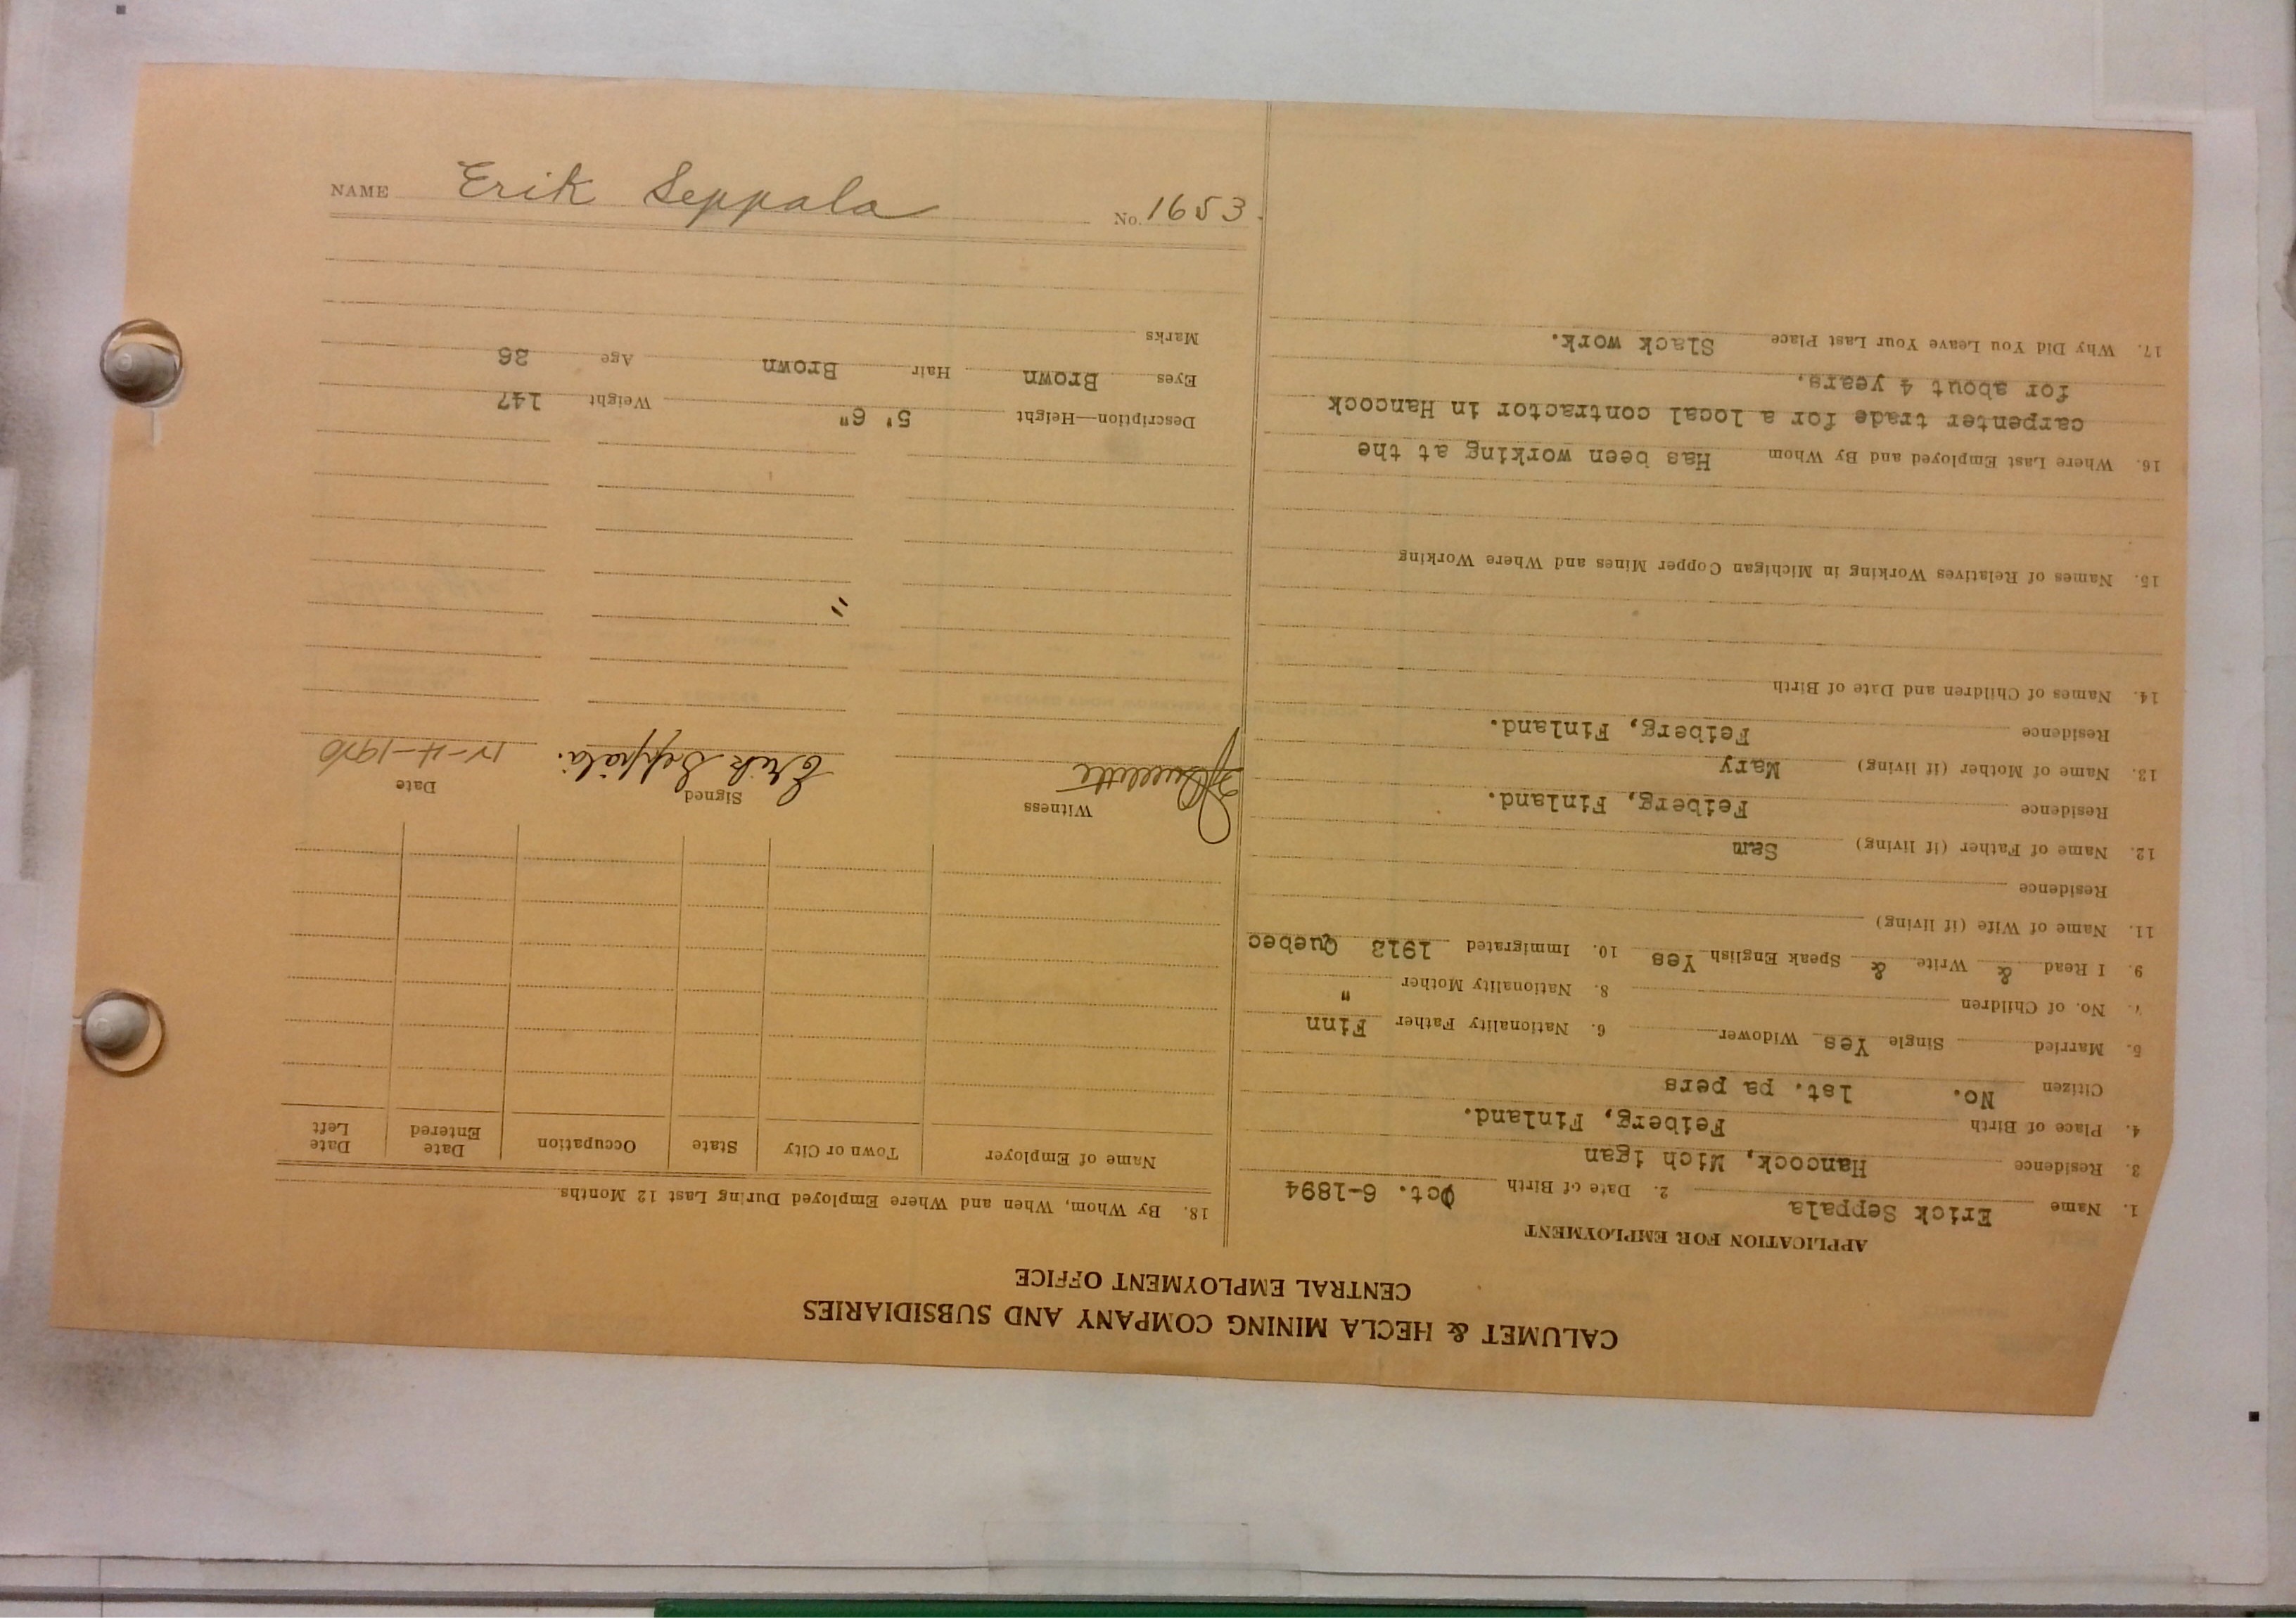 NAME Erik Seppala No. 1653
CALUMET & HECLA MINING COMPANY AND SUBSIDIARIES
CENTRAL EMPLOYMENT OFFICE
APPLICATION FOR EMPLOYMENT
1. Name Erick Seppala 2. Date of Birth Oct. 6-1894
3. Residence Hancock, Mich igan
4. Place of Birth Feiberg, Finland.
Citizen No. 1st. pa pers
5. Married Single Yes Widower 6. Nationality Father Finn
7. No. of Children 8. Nationality Mother "
9. I Read & Write & Speak English Yes 10. Immigrated 1913 Quebec
11. Name of Wife (if living)
Residence
12. Name of Father (if living) Sam
Residence Feiberg, Finland.
13. Name of Mother (if living) Mary
Residence Feiberg, Finland.
14. Names of Children and Date of Birth
15. Names of Relatives Working in Michigan Copper Mines and Where Working
16. Where Last Employed and By Whom Has been working at the
carpenter trade for a local contractor in Hancock
for about 4 years.
17. Why Did You Leave Your Last Place Slack work.
18. By Whom, When and Where Employed During Last 12 Months
Name of Employer Town or City State Occupation Date Entered Date Left
Witness Signed Date
Erik Seppälä.
"
Description—Height 5' 6" Weight 147
Eyes Brown Hair Brown Age 26
Marks